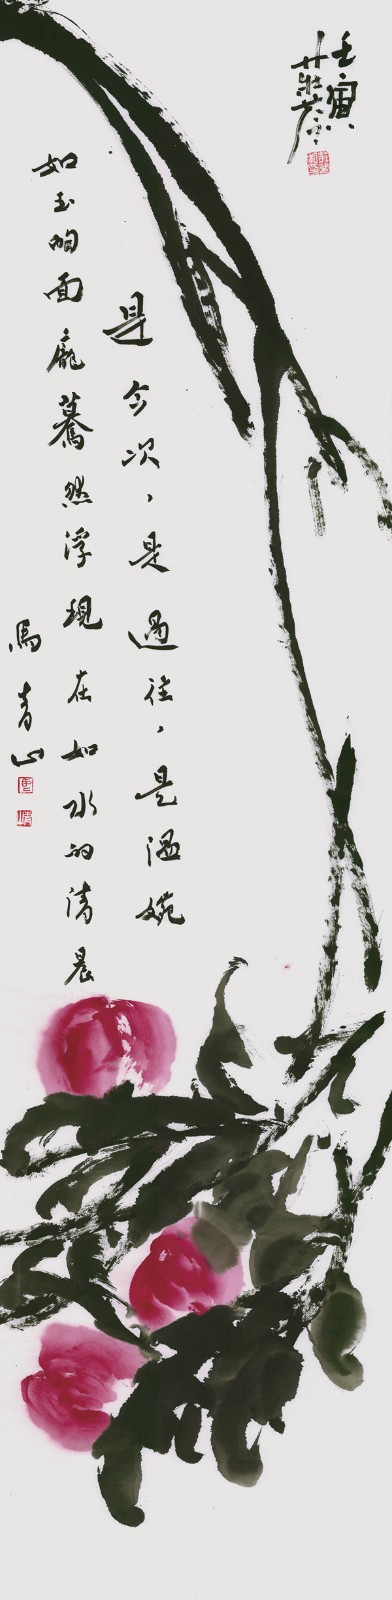 壬寅
是今次，是過往，是溫婉
如玉的面龐驀然浮現在如水的清晨
馬青山